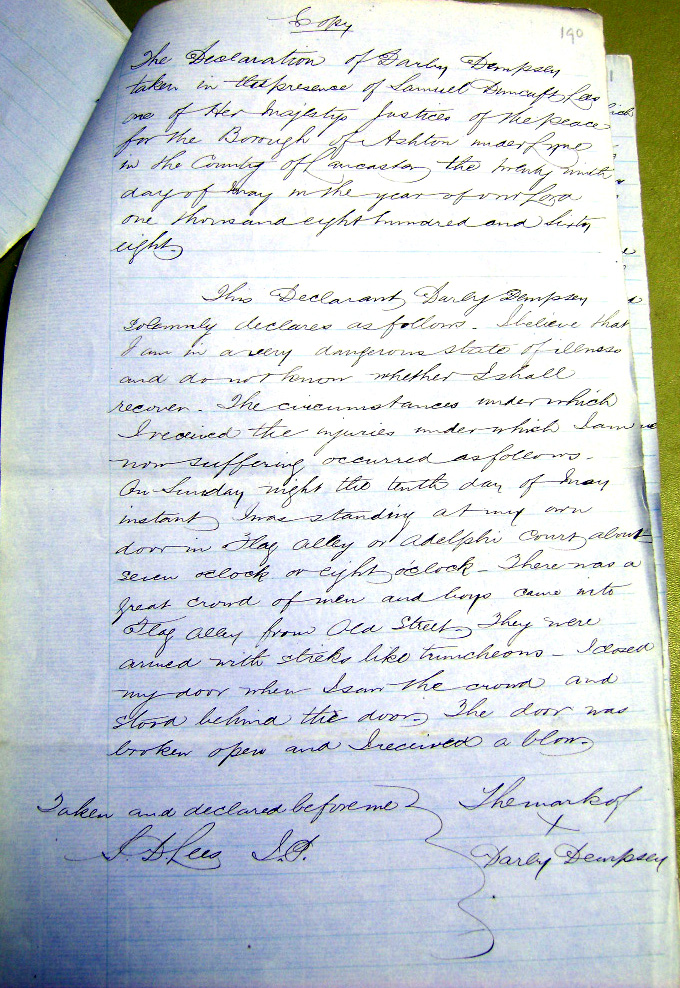 Copy
190
The Declaration of Darby Dempsey
taken in the presence of Samuel Duncuft Lees
one of Her Majestys Justices of the peace
for the Borough of Ashton under Lyne
in the County of Lancaster the twenty ninth
day of May in the year of our Lord
one thousand eight hundred and sixty
eight.
This Declarant Darby Dempsey
solemnly declares as follows. I believe that
I am in a very dangerous state of illness
and do not know whether I shall
recover. The circumstances under which
I received the injuries under which I am
now suffering occurred as follows.
On Sunday night the tenth day of May
instant I was standing at my own
door in Flag Alley or Adelphi Court about
seven oclock or eight oclock - There was a
great crowd of men and boys came into
Flag Alley from Old Street. They were
armed with sticks like truncheons - I closed
my door when I saw the crowd and
stood behind the door. The door was
broken open and I received a blow.
Taken and declared before me
S. D Lees J.P.
The mark of
X
Darby Dempsey